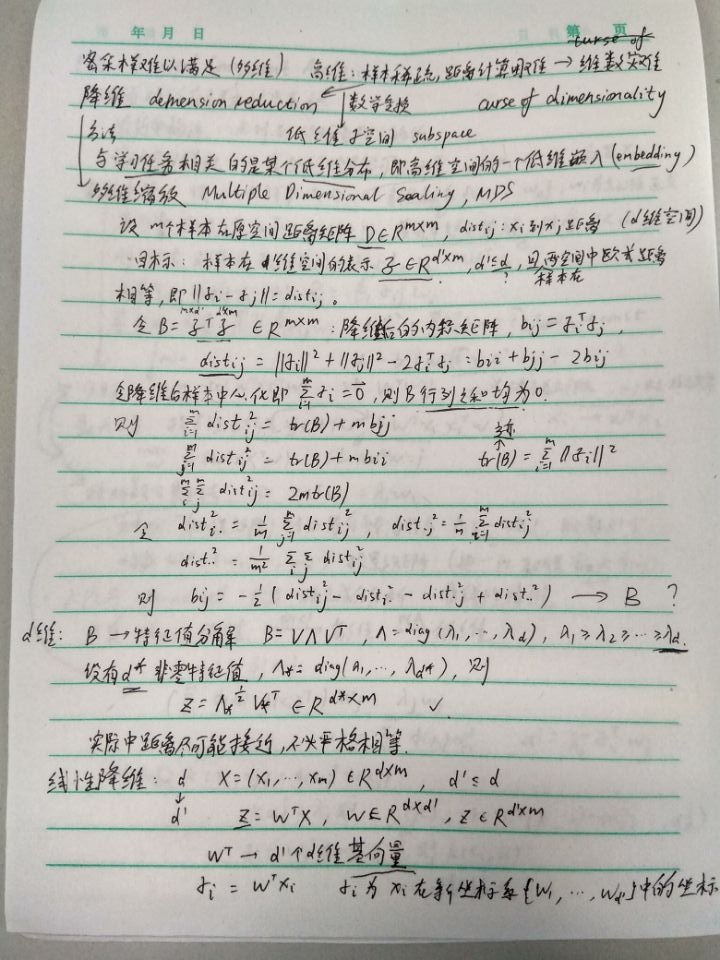 年 月 日 第 页
curse of
密采样难以满足 (多维) 高维: 样本稀疏, 距离计算困难 → 维数灾难
降维 demension reduction 数学变换 curse of dimensionality
方法 低维子空间 subspace
与学习任务相关的是某个低维分布, 即高维空间的一个低维嵌入 (embedding)
多维缩放 Multiple Dimensional Scaling, MDS
设 m个样本在原空间距离矩阵 D∈R^{m×m}, dist_{ij}: x_i到x_j距离 (d维空间)
目标: 样本在d'维空间的表示 Z∈R^{d'×m}, d'≤d, 且两空间中欧式距离
? 样本在
相等, 即 ||z_i - z_j|| = dist_{ij}。
m×d' d'×m
令 B = Z^T Z ∈ R^{m×m}: 降维后的内积矩阵, b_{ij} = z_i^T z_j,
dist_{ij} = ||z_i||^2 + ||z_j||^2 - 2z_i^T z_j = b_{ii} + b_{jj} - 2b_{ij}
令降维后样本中心化即 Σ_{i=1}^m z_i = 0⃗, 则B行列之和均为0.
则 Σ_{i=1}^m dist_{ij}^2 = tr(B) + m b_{jj} 迹
Σ_{j=1}^m dist_{ij}^2 = tr(B) + m b_{ii} tr(B) = Σ_{i=1}^m ||z_i||^2
Σ_i^m Σ_j^m dist_{ij}^2 = 2m tr(B)
令 dist_{i·}^2 = 1/m Σ_{j=1}^m dist_{ij}^2, dist_{·j}^2 = 1/m Σ_{i=1}^m dist_{ij}^2
dist_{··}^2 = 1/m^2 Σ_i Σ_j dist_{ij}^2
则 b_{ij} = -1/2 (dist_{ij}^2 - dist_{i·}^2 - dist_{·j}^2 + dist_{··}^2) → B ?
d维: B → 特征值分解 B = VΛV^T, Λ = diag(λ_1, ..., λ_d), λ_1 ≥ λ_2 ≥ ... ≥ λ_d.
设有d* 非零特征值, Λ_* = diag(λ_1, ..., λ_{d*}), 则
Z = Λ_*^{1/2} V_*^T ∈ R^{d*×m} ✓
实际中距离尽可能接近, 不必严格相等.
线性降维: d X = (x_1, ..., x_m) ∈ R^{d×m}, d' ≤ d
↓
d' Z = W^T X, W ∈ R^{d×d'}, Z ∈ R^{d'×m}
W^T → d'个d维基向量
z_i = W^T x_i z_i为x_i在新坐标系{w_1, ..., w_{d'}}中的坐标